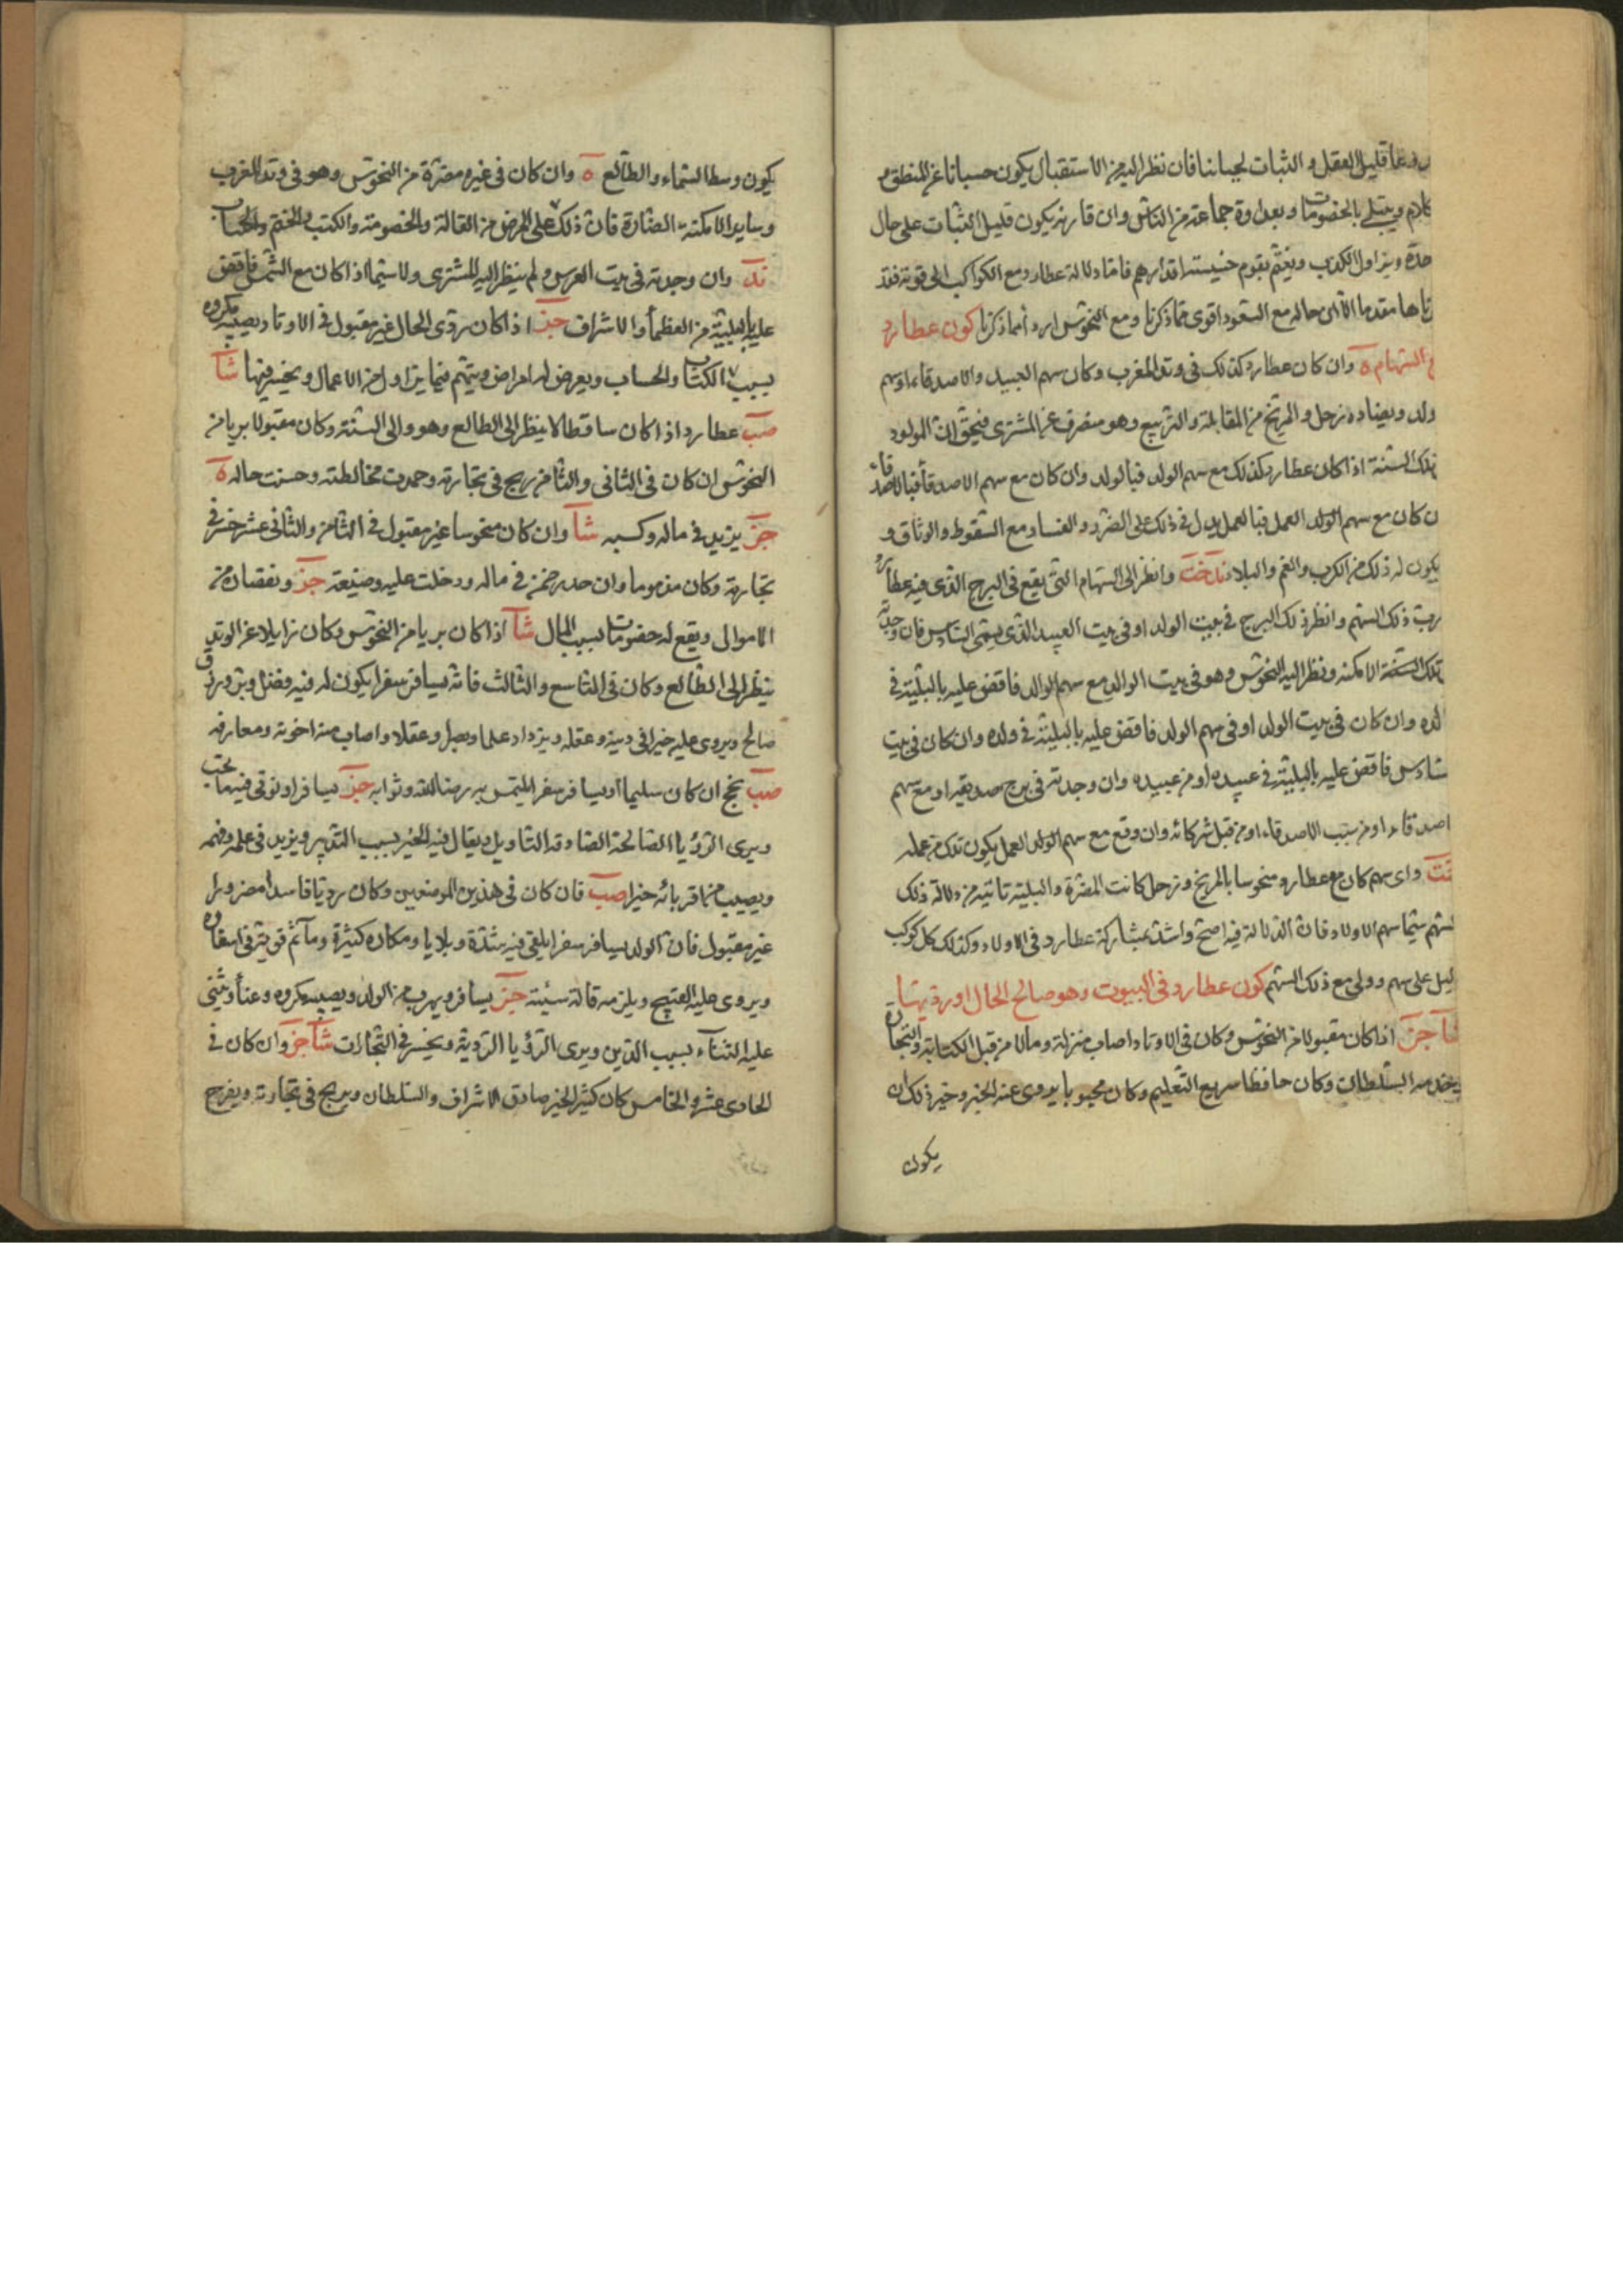 قليل العقل و الثبات لجبانا فان نظر اليه من الاستقبال يكون حسبانا عن المنطق و
كلام ويبتلى بالخصومات وبعداوة جماعته من الناس وان قارنه يكون قليل الثبات على حال
حدة ويزاول الكذب ويغتم بقوم خسيسة اقدارهم فاما دلالة عطارد مع الكواكب الى قوته فقد
ناها مقدما الا ان حاله مع السعود اقوى مما ذكرنا ومع النحوس اردأ مما ذكرنا كون عطارد
السهام ه وان كان عطارد كذلك فى وتد المغرب وكان سهم العبيد والاصدقاء او سهم
ولد ويضاده زحل و المريخ من المقابلة والتربيع وهو منصرف عن المشترى فيحق ان المولود
تلك السنة اذا كان عطارد كذلك مع سهم الولد فبالولد وان كان مع سهم الاصدقاء فبالاصدقاء
ن كان مع سهم الولد العمل فبالعمل يدل فى ذلك على الضرر و الفساد مع السقوط والوثاق و
يكون له ذلك من الكرب والغم والبلاء ند خت وانظر الى السهام التى يقع فى البرج الذى فيه عطارد
رب ذلك السهم وانظر ذلك البرج فى بيت الولد او فى بيت العبيد الذى يسمى السادس فان وجدته
تلك السنة الامكنه ونظر اليه النحوس وهو فى بيت الوالد مع سهم الوالد فاقض عليه بالبلية فى
لده وان كان فى بيت الولد او فى سهم الولد فاقض عليه بالبلية فى ولده وان كان فى بيت
سادس فاقض عليه بالبلية فى عبيده او من عبيده وان وجدته فى برج صديقه او مع سهم
اصدقاء او من سبب الاصدقاء او من قبل شركائه وان وقع مع سهم الولد العمل يكون تلك من عمله
واى سهم كان مع عطارد منحوسا بالمريخ وزحل كانت المضرة والبلية تاتيه من دلالة ذلك
لسهم سيما سهم الاولاد فان الدلالة فيه اصح واشد بمشاركة عطارد فى الاولاد وكذلك كل كوكب
ليل على سهم وولى مع ذلك السهم كون عطارد فى البيوت وهو صالح الحال او رديها
شا جز اذا كان مقبولا من النحوس وكان فى الاوتاد اصاب منزلة ومالا من قبل الكتابة والتجارة
يخدمه السلطان وكان حافظا سريع التعليم وكان محبوبا يروى عنه الخير وخير ذلك ان
يكون
يكون وسط السماء والطالع ه وان كان فى غيره مضرة من النحوس وهو فى وتد المغرب
وساير الامكنة الضارة فان ذلك على المرض من القالة والخصومة والكتب والختم والحساب
ند وان وجدته فى بيت العرس ولم ينظر اليه المشترى ولا سيما اذا كان مع الشمس فاقض
عليه بالبلية من العظماء والاشراف جز اذا كان ردى الحال غير مقبول فى الاوتاد يصيبه مكروه
بسبب الكتاب والحساب ويعرض له امراض ويتهم فيما يزاول من الاعمال ويخسر فيها شا
صب عطارد اذا كان ساقطا لا ينظر الى الطالع وهو والى السنة وكان مقبولا بريا من
النحوس ان كان فى الثانى والثامن ربح فى تجارته وحمدت مخالطته وحسنت حاله ه
جز يزيد فى ماله وكسبه شا وان كان منحوسا غير مقبول فى الثامن والثانى عشر خسر فى
تجارته وكان مذموما وان حدبه ضمن فى ماله ودخلت عليه وضيعة جز ونقصان من
الاموالى ويقع له خصومات بسبب المال شا اذا كان بريا من النحوس وكان زايلا عن الوتد
ينظر الى الطالع وكان فى التاسع والثالث فانه يسافر سفرا يكون له فيه فضل وبر ورزق
صالح ويروى عليه خيرا فى دينه وعقله ويزداد علما ونبلا وعقلا واصاب منه اخوته ومعارفه
صب نجح ان كان سليما او يسافر سفرا يلتمس به رضا الله وثوابه جز يسافر او نوقى فيما يحب
ويرى الرؤيا الصالحة الصادقة التاويل ويقال فيه الخير بسبب التدبير ويزيد فى علمه وفهمه
ويصيب من اقربائه خيرا صب فان كان فى هذين الموضعين وكان رديا فاسدا مضرورا
غير مقبول فان الولد يسافر سفرا يلقى فيه شدة وبلايا ومكاره كثيرة ومآثم قويه فى اسفاره
ويروى عليه القبيح ويلزمه قالة سيئة جز يسافر ويهرب من الولد ويصيبه مكروه وعناء ويثنى
عليه الثناء بسبب الدين ويرى الرؤيا الردية ويخسر فى التجارات شا جز وان كان فى
الحادى عشر والخامس كان كثير الخير صادق الاشراف والسلطان ويربح فى تجارته ويفرح